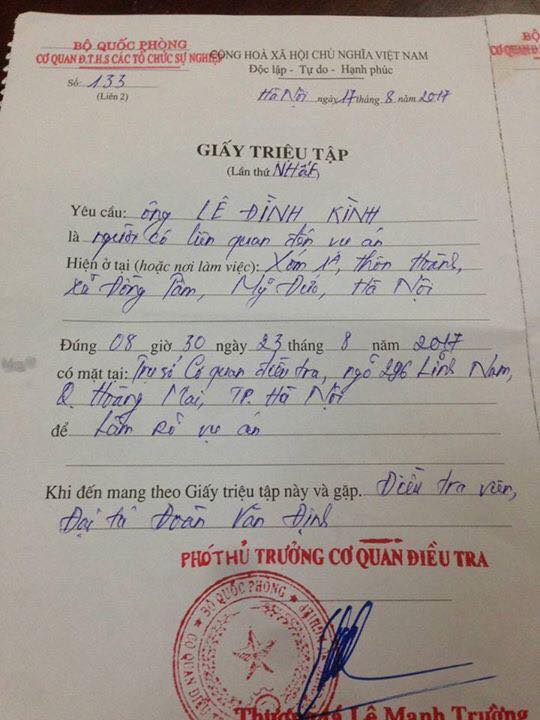 BỘ QUỐC PHÒNG
CƠ QUAN Đ.T.H.S CÁC TỔ CHỨC SỰ NGHIỆP
CỘNG HOÀ XÃ HỘI CHỦ NGHĨA VIỆT NAM
Độc lập - Tự do - Hạnh phúc
Số 133
(Liên 2)
Hà Nội ngày 17 tháng 8 năm 2017
GIẤY TRIỆU TẬP
(Lần thứ NHẤT)
Yêu cầu: ông LÊ ĐÌNH KÌNH
là người có liên quan đến vụ án
Hiện ở tại (hoặc nơi làm việc): Xóm thôn Hoành,
Xã Đồng Tâm, Mỹ Đức, Hà Nội
Đúng 08 giờ 30 ngày 23 tháng 8 năm 2017
có mặt tại: Trụ sở Cơ quan điều tra, ngõ 296 Lĩnh Nam,
Q. Hoàng Mai, TP. Hà Nội
để Làm rõ vụ án
Khi đến mang theo Giấy triệu tập này và gặp. Điều tra viên,
Đại tá Đoàn Văn Định
PHÓ THỦ TRƯỞNG CƠ QUAN ĐIỀU TRA
BỘ QUỐC PHÒNG
Thượng tá Lê Mạnh Trường
BỘ QU
CƠ QUAN Đ.T.H.S